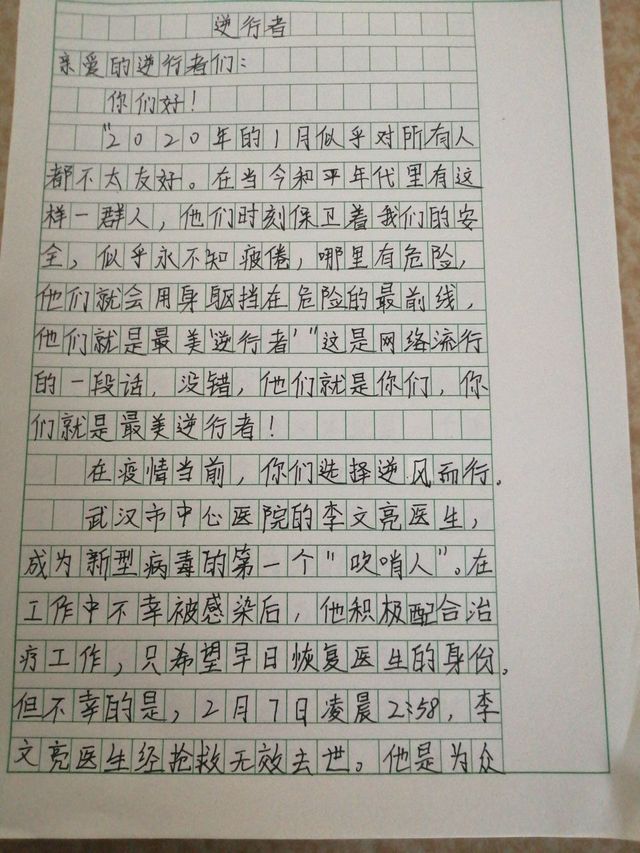 逆行者
亲爱的逆行者们:
你们好!
"2020年的1月似乎对所有人
都不太友好。在当今和平年代里有这
样一群人，他们时刻保卫着我们的安
全，似乎永不知疲倦，哪里有危险，
他们就会用身躯挡在危险的最前线，
他们就是最美逆行者'"这是网络流行
的一段话，没错，他们就是你们，你
们就是最美逆行者!
在疫情当前，你们选择逆风而行。
武汉市中心医院的李文亮医生，
成为新型病毒的第一个"吹哨人"。在
工作中不幸被感染后，他积极配合治
疗工作，只希望早日恢复医生的身份。
但不幸的是，2月7日凌晨2:58，李
文亮医生经抢救无效去世。他是为众